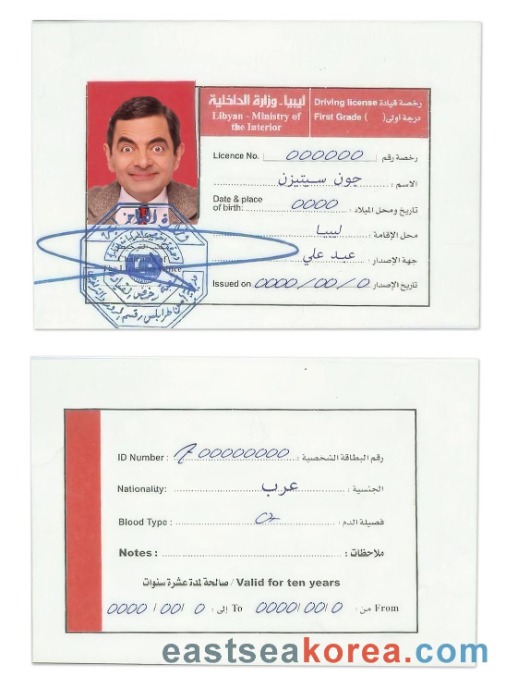 ليبيا - وزارة الداخلية
Libyan - Ministry of the Interior
Driving license رخصة قيادة
First Grade ( ) درجة أولى
Licence No. 000000 رخصة رقم
جون سيتيزن الاسم :
Date & place of birth: 0000 تاريخ ومحل الميلاد :
ليبيا محل الإقامة :
عبد علي جهة الإصدار :
Issued on 0000/00/0 تاريخ الإصدار
ID Number : 00000000 رقم البطاقة الشخصية :
Nationality: عرب الجنسية :
Blood Type : فصيلة الدم :
Notes : ملاحظات :
صالحة لمدة عشرة سنوات / Valid for ten years
0000/00/0 إلى : To 0000/00/0 من : From
eastseakorea.com